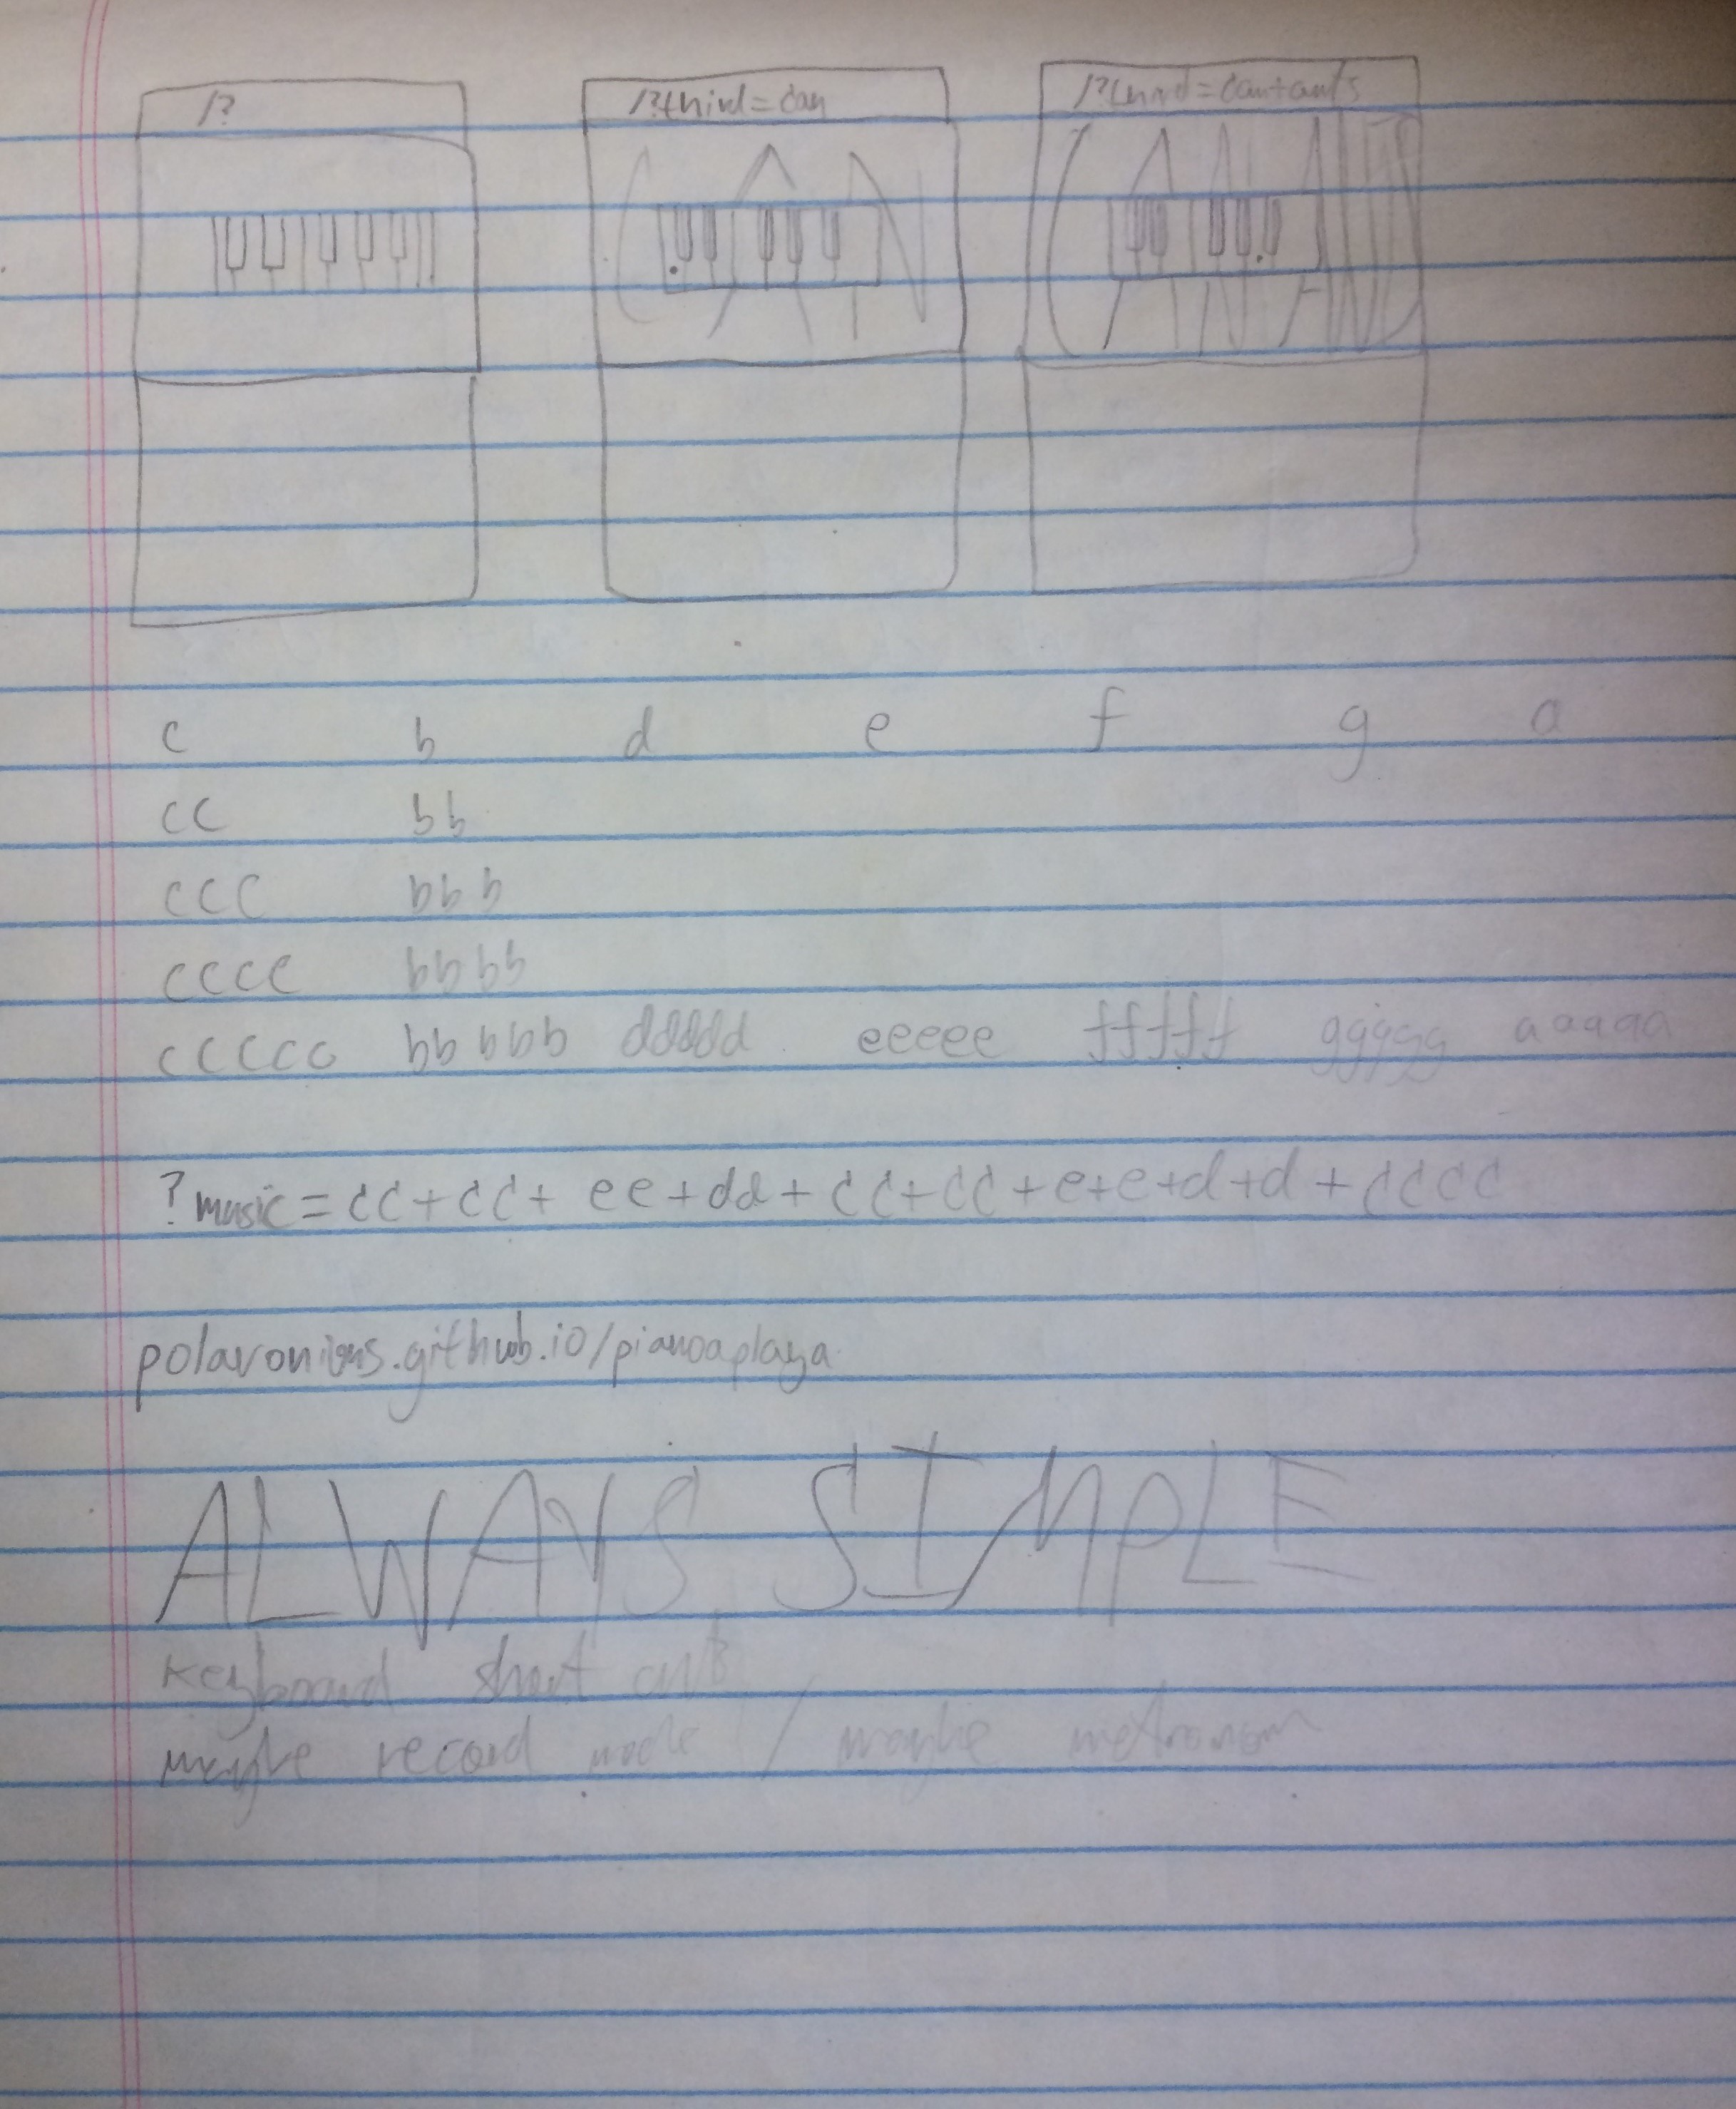 /?
/?third=can
CAN
CAN AND
c b d e f g a
cc bb
ccc bbb
cccc bbbb
ccccc bbbbb ddddd eeeee fffff ggggg aaaaa
?music=cc+cc+ee+dd+cc+cc+e+e+d+d+cccc
polavonions.github.io/pianoaplaya
ALWAYS SIMPLE
keyboard short cuts
maybe record mode / maybe metronom